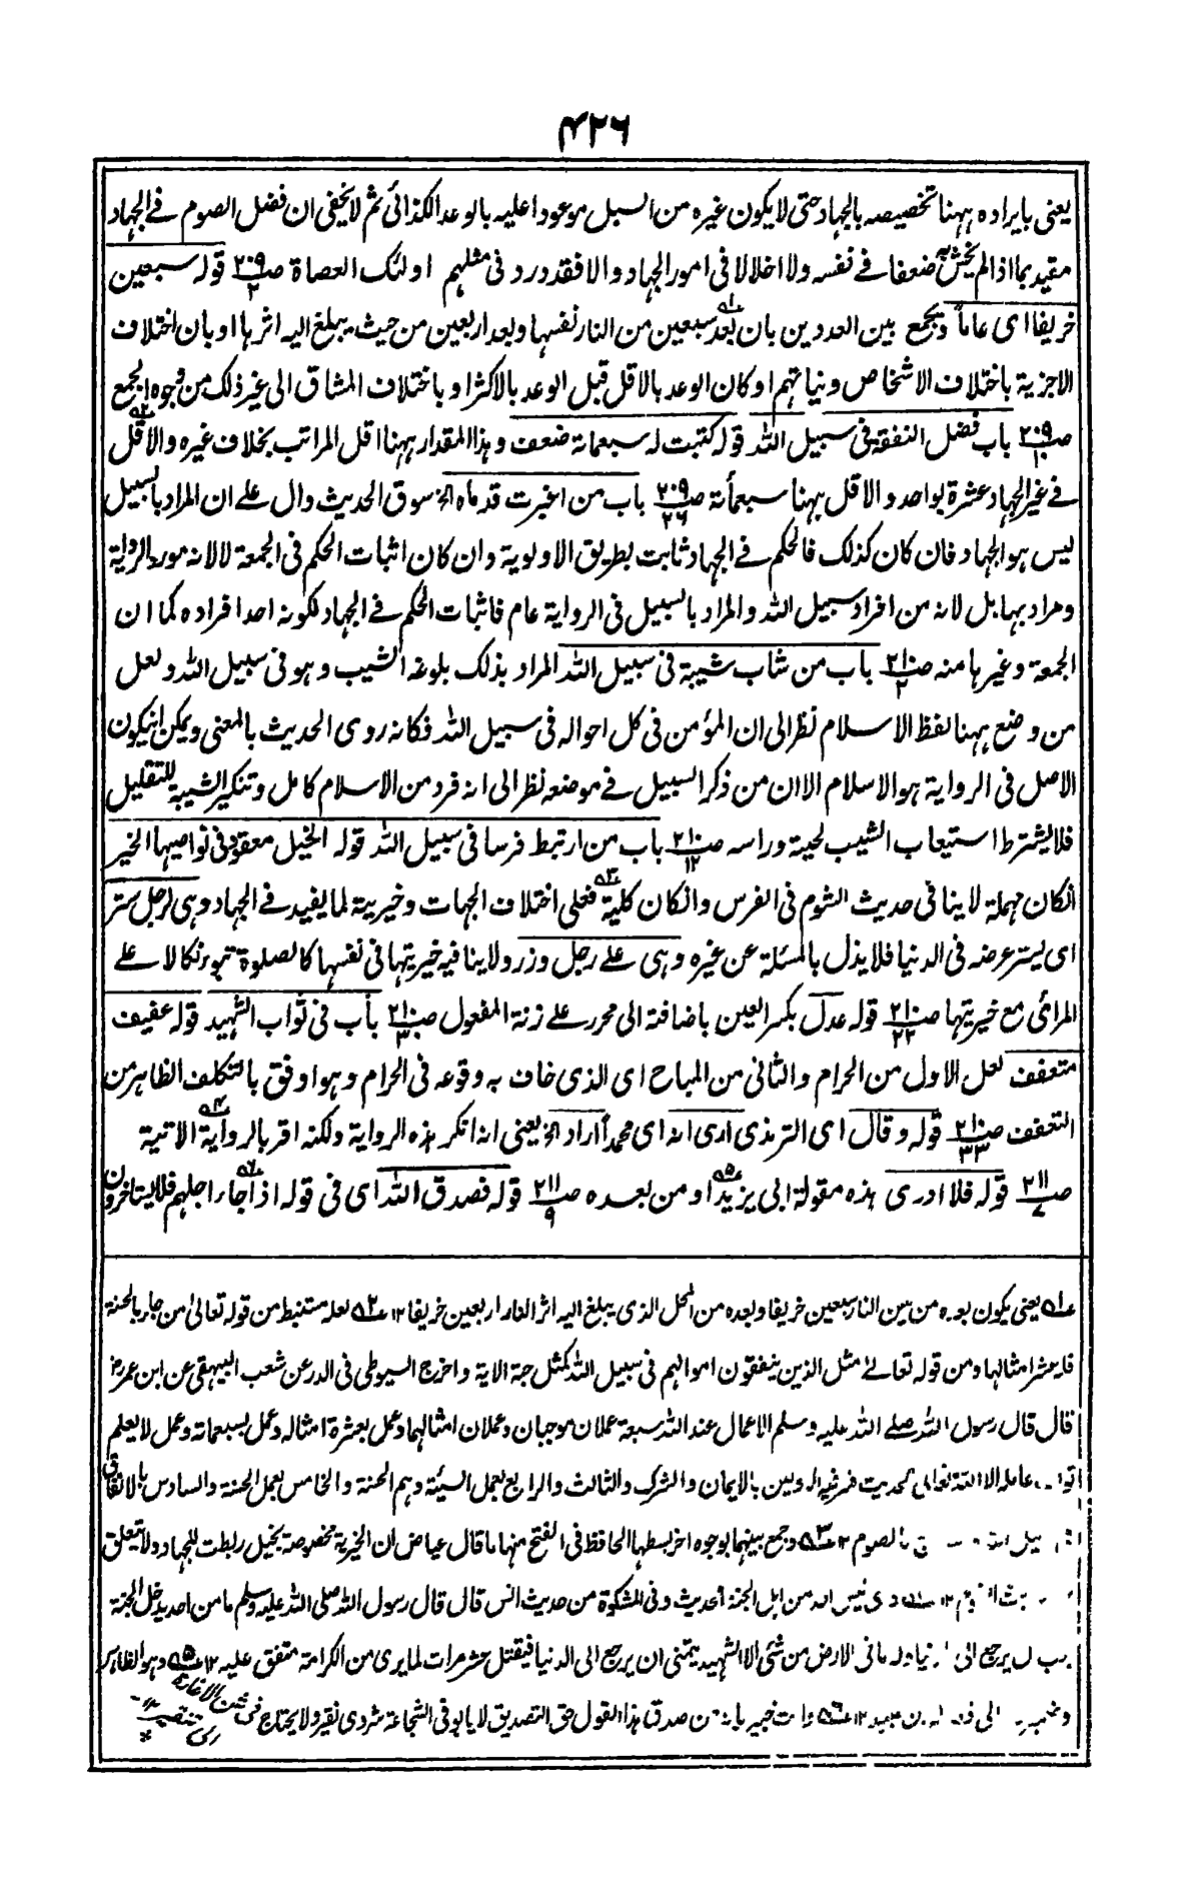 ۴۲۶
يعنى بايراده ههنا تخصيصه بالجهاد حتى لا يكون غيره من السبل موعودا عليه بالوعد الكذائى ثم لا يخفى ان فضل الصوم فے الجهاد
مقيد بما اذا لم يخش به ضعفا فے نفسه ولا اخلالا فى امور الجهاد والا فقد ورد فى مثلهم اولئك العصاة صـ ۲۰۹/۲ قوله سبعين
خريفا اى عاما ويجمع بين العددين بان بعد سبعين من النار نفسها وبعد اربعين من حيث يبلغ اليه اثرها او بان اختلاف
الاجزية باختلاف الاشخاص ونياتهم او كان الوعد بالاقل قبل الوعد بالاكثر او باختلاف المشاق الى غير ذلك من وجوه الجمع
صـ ۲۰۹/۱۰ باب فضل النفقة فى سبيل الله قوله كتبت له سبعمائة ضعف وهذا المقدار ههنا اقل المراتب بخلاف غيره والاقل
فے غير الجهاد عشرة بواحد والاقل ههنا سبعمأئة صـ ۲۰۹/۲۶ باب من اغبرت قدماه الخ سوق الحديث دال علے ان المراد بالسبيل
ليس هو الجهاد فان كان كذلك فالحكم فے الجهاد ثابت بطريق الاولوية وان كان اثبات الحكم فى الجمعة لا لانه مورد الرواية
ومراد بها بل لانه من افراد سبيل الله والمراد بالسبيل فى الرواية عام فاثبات الحكم فے الجهاد لكونه احد افراده كما ان
الجمعة وغيرها منه صـ ۲۱۰/۲ باب من شاب شيبة فى سبيل الله المراد بذلك بلوغه الشيب وهو فى سبيل الله ولعل
من وضع ههنا لفظ الاسلام نظر الى ان المؤمن فى كل احواله فى سبيل الله فكانه روى الحديث بالمعنى ويمكن ان يكون
الاصل فى الرواية هو الاسلام الا ان من ذكر السبيل فے موضعه نظر الى انه فرد من الاسلام كامل وتنكير الشيبة للتقليل
فلا يشترط استيعاب الشيب لحية وراسه صـ ۲۱۰/۱۲ باب من ارتبط فرسا فى سبيل الله قوله الخيل معقود فى نواصيها الخير
انكان مهملة لاينافى حديث الشوم فى الفرس وانكان كلية فعلى اختلاف الجهات وخيريته لما يفيد فے الجهاد وهى لرجل ستر
اى يستر عرضه فى الدنيا فلا يذل بالمسئلة عن غيره وهى علے رجل وزر ولا ينافيه خيريتها فى نفسها كالصلوة تعود نكالا علے
المرائى مع خيريتها صـ ۲۱۰/۲۲ قوله عدل بكسر العين باضافته الى محرر علے زنة المفعول صـ ۲۱۰/۳۰ باب فى ثواب الشهيد قوله عفيف
متعفف لعل الاول من الحرام والثانى من المباح اى الذى خاف به وقوعه فى الحرام وهو اوفق بالتكلف الظاهر من
التعفف صـ ۲۱۰/۳۳ قوله وقال اى الترمذى ارى انه اى محمدا اراد الخ يعنى انه انكر هذه الرواية ولكنه اقر بالرواية الاتية
صـ ۲۱۱/۷ قوله فلا ادرى هذه مقولة ابى يزيد او من بعده صـ ۲۱۱/۹ قوله فصدق الله اى فى قوله اذا جاء اجلهم فلا يستاخرون
عـ۱ يعنى يكون بعده من بين النار سبعين خريفا وبعده من المحل الذى يبلغ اليه اثر النار اربعين خريفا ۱۲ عـ۲ لعله مستنبط من قوله تعالىٰ من جاء بالحسنة
فله عشر امثالها ومن قوله تعالےٰ مثل الذين ينفقون اموالهم فى سبيل الله كمثل حبة الاية واخرج السيوطى فى الدر عن شعب البيهقى عن ابن عمر رض
قال قال رسول الله صلے الله عليه وسلم الاعمال عند الله سبعة عملان موجبان وعملان امثالهما وعمل بعشرة امثاله وعمل بسبعمائة وعمل لا يعلم
عامله الا الله تعالى الحديث بالايمان والشرك والثالث والرابع بعمل السيئة وهم الحسنة والخامس بعمل الحسنة والسادس بالانفاق
بالصوم ۱۲ عـ۳ وجمع بينهما بوجوه اخر بسطها الحافظ فى الفتح منها ما قال عياض ان الخيرية مخصوصة بخيل ربطت للجهاد ولا تعلق
۱۲ من اهل الجنة الحديث وفى المشكوة من حديث انس قال قال رسول الله صلى الله عليه وسلم ما من احد يدخل الجنة
يرجع الى وله ما فى الارض من شئ الا الشهيد يتمنى ان يرجع الى الدنيا فيقتل عشر مرات لما يرى من الكرامة متفق عليه ۱۲ عـ۵ وهو الظاهر
۱۲ عـ۶ خبير بان من صدق هذا القول حق التصديق لا يالو فى الشجاعة شروى نقير ولا يحتاج فى شن الاغارة